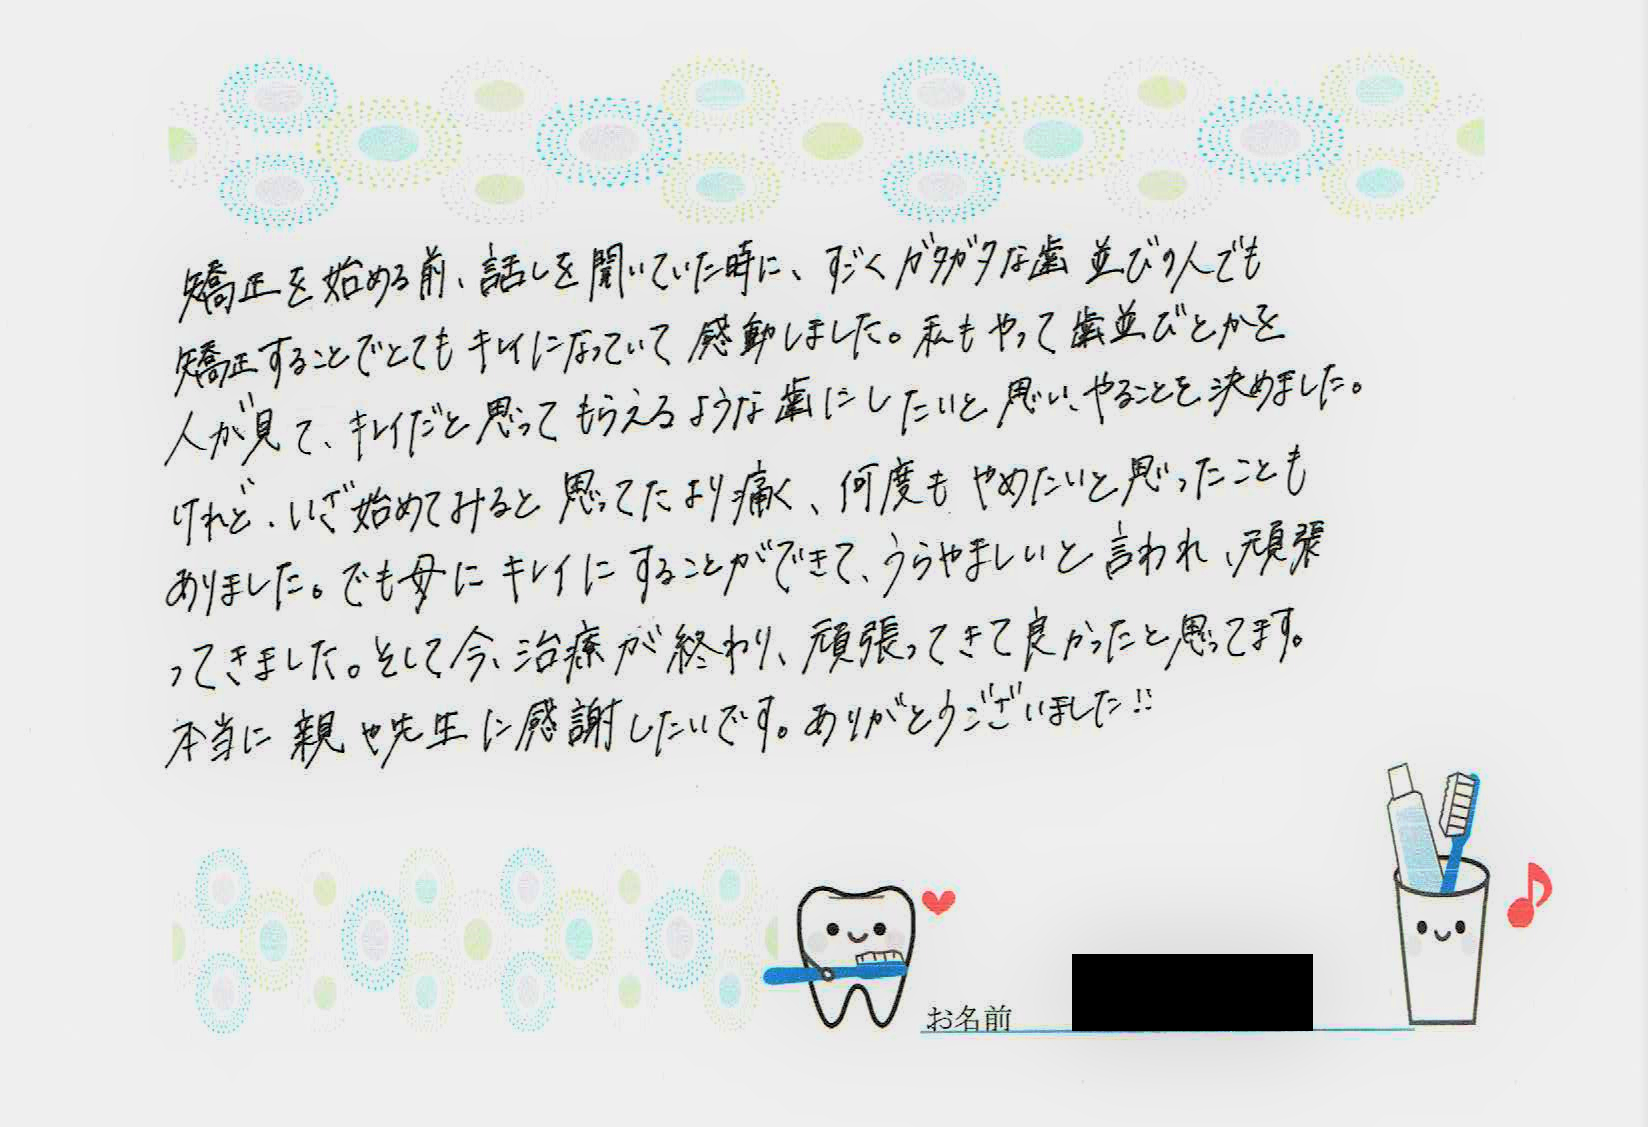 矯正を始める前、話しを聞いていた時に、すごくガタガタな歯並びの人でも
矯正することでとてもキレイになっていて感動しました。私もやって歯並びとかを
人が見て、キレイだと思ってもらえるような歯にしたいと思い、やることを決めました。
けれど、いざ始めてみると思ってたより痛く、何度もやめたいと思ったことも
ありました。でも母にキレイにすることができて、うらやましいと言われ、頑張
ってきました。そして今、治療が終わり、頑張ってきて良かったと思ってます。
本当に親や先生に感謝したいです。ありがとうございました!!
お名前